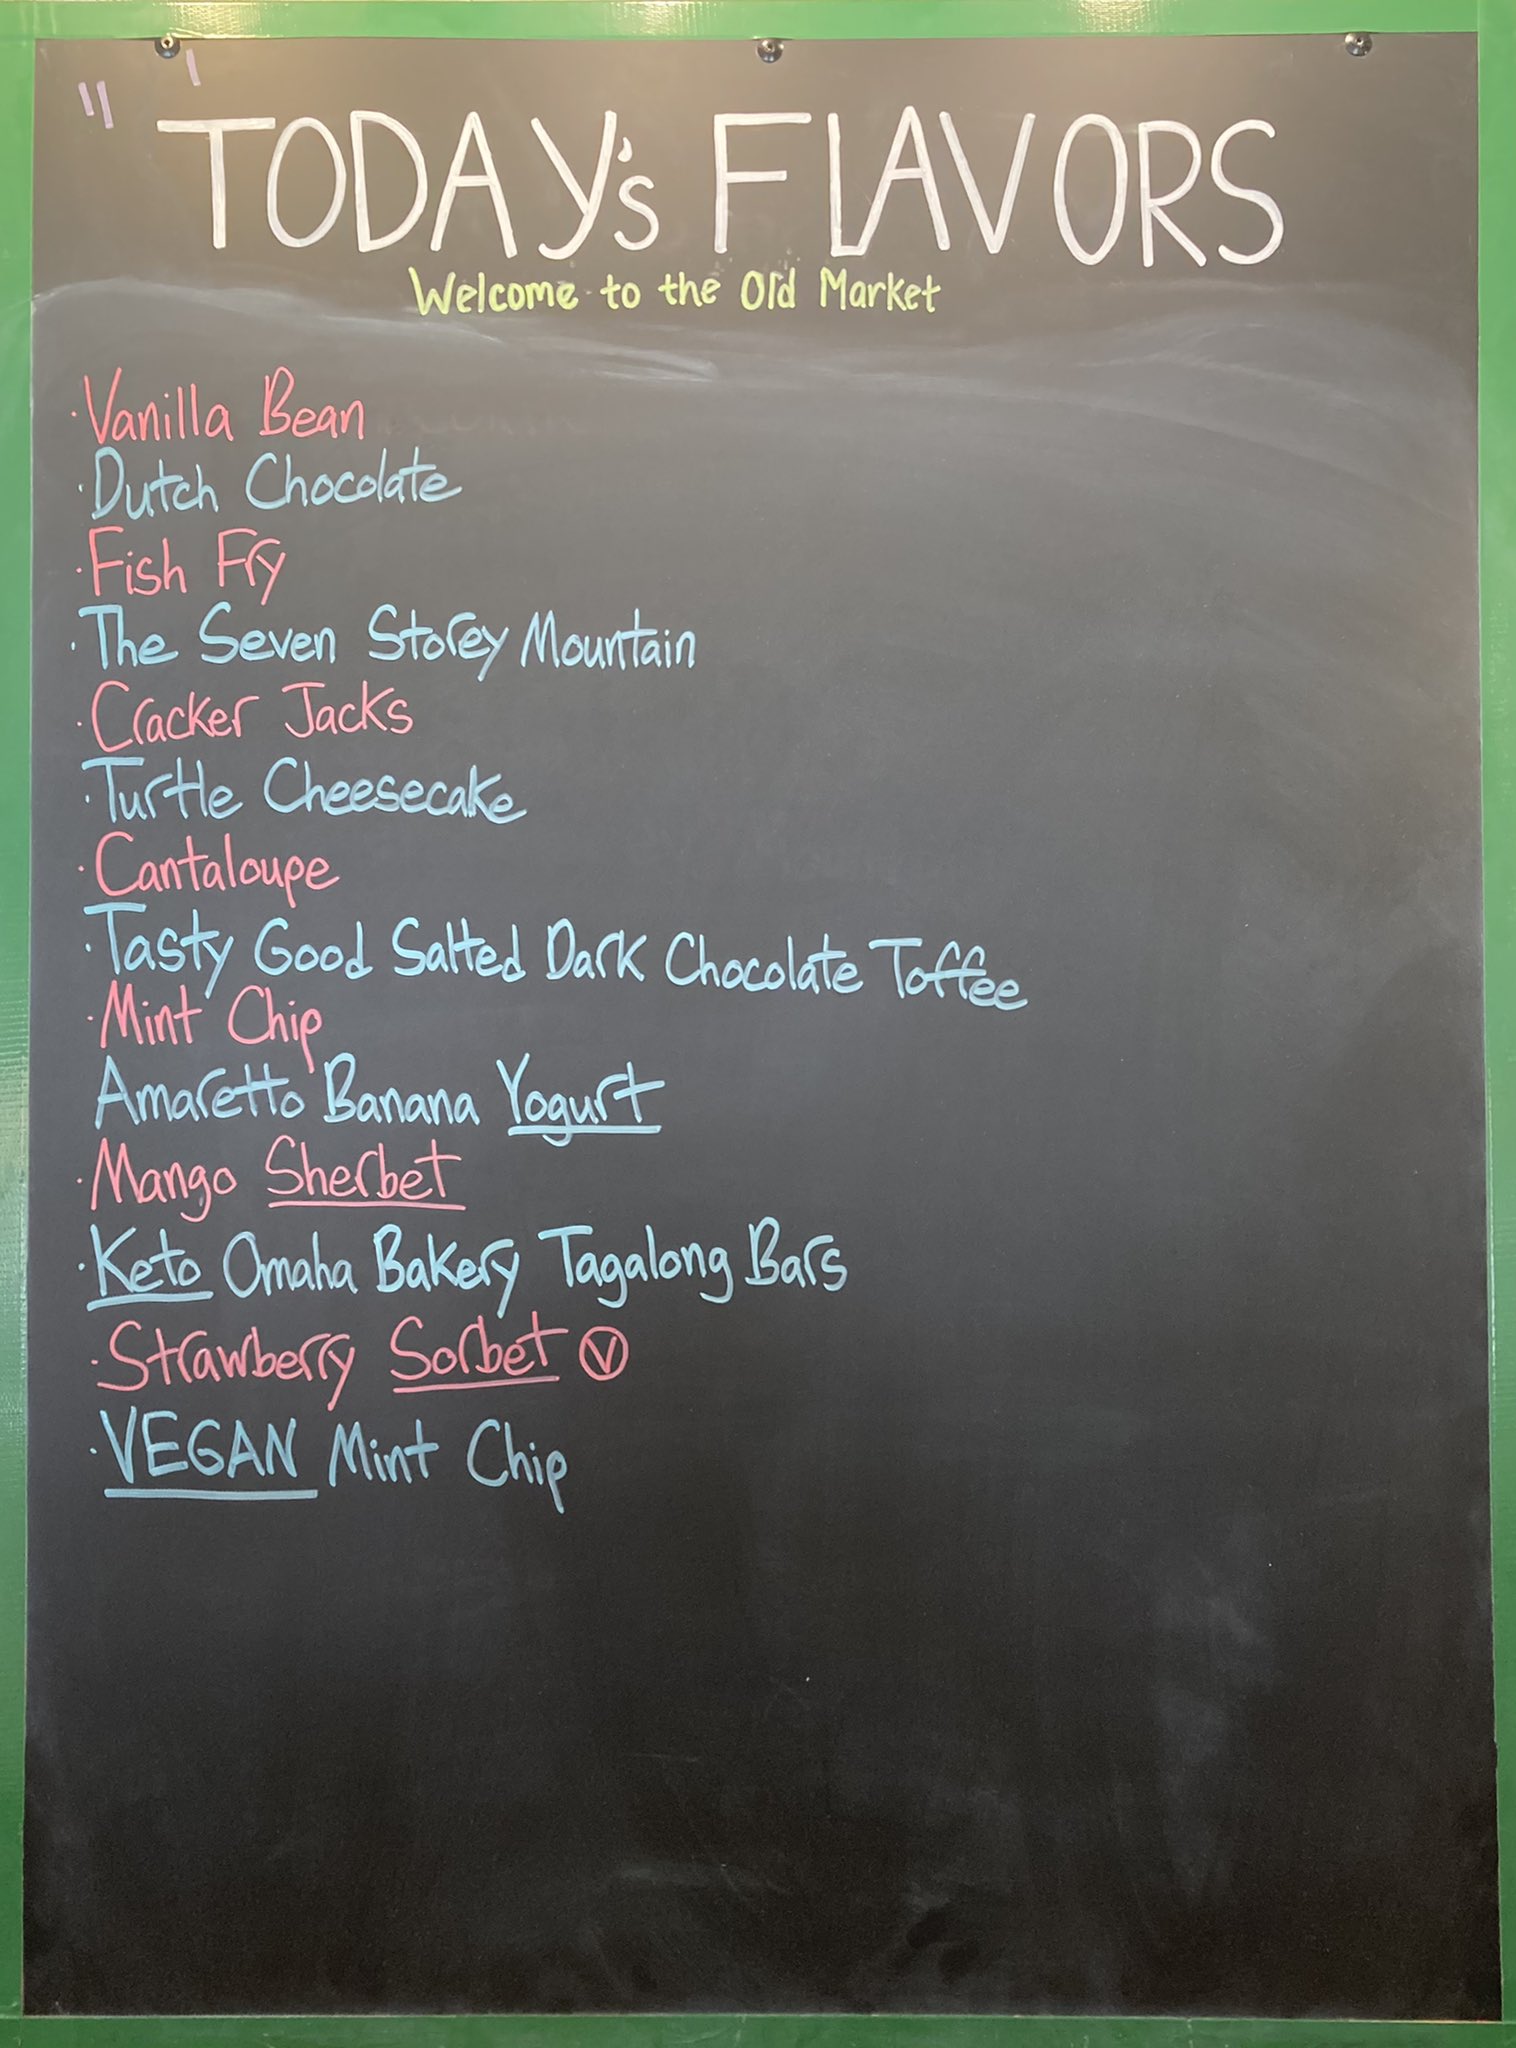 TODAY's FLAVORS
Welcome to the Old Market
· Vanilla Bean
· Dutch Chocolate
· Fish Fry
· The Seven Storey Mountain
· Cracker Jacks
· Turtle Cheesecake
· Cantaloupe
· Tasty Good Salted Dark Chocolate Toffee
· Mint Chip
Amaretto Banana Yogurt
· Mango Sherbet
· Keto Omaha Bakery Tagalong Bars
· Strawberry Sorbet Ⓥ
· VEGAN Mint Chip